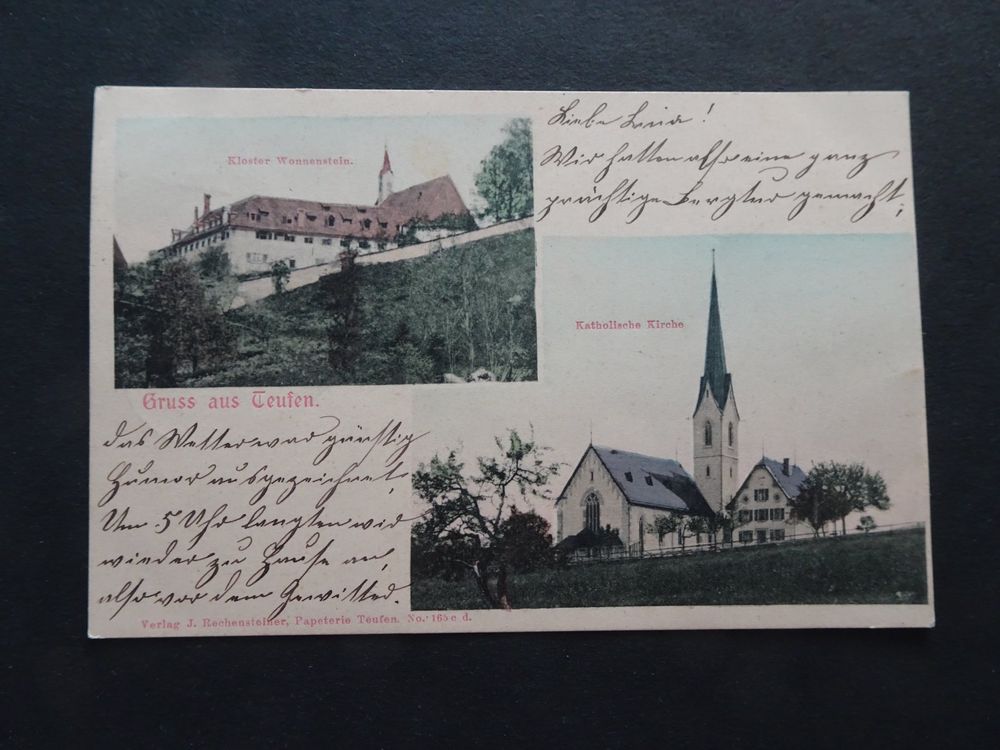 Liebe Lina!
Wir hatten also eine ganz
prächtige Bergtur gemacht;
Kloster Wonnenstein.
Katholische Kirche
Gruss aus Teufen.
das Wetter war günstig
Humor ausgezeichnet.
Um 5 Uhr langten wir
wieder zu Hause an,
also vor dem Gewitter.
Verlag J. Rechensteiner, Papeterie Teufen. No. 165 c d.